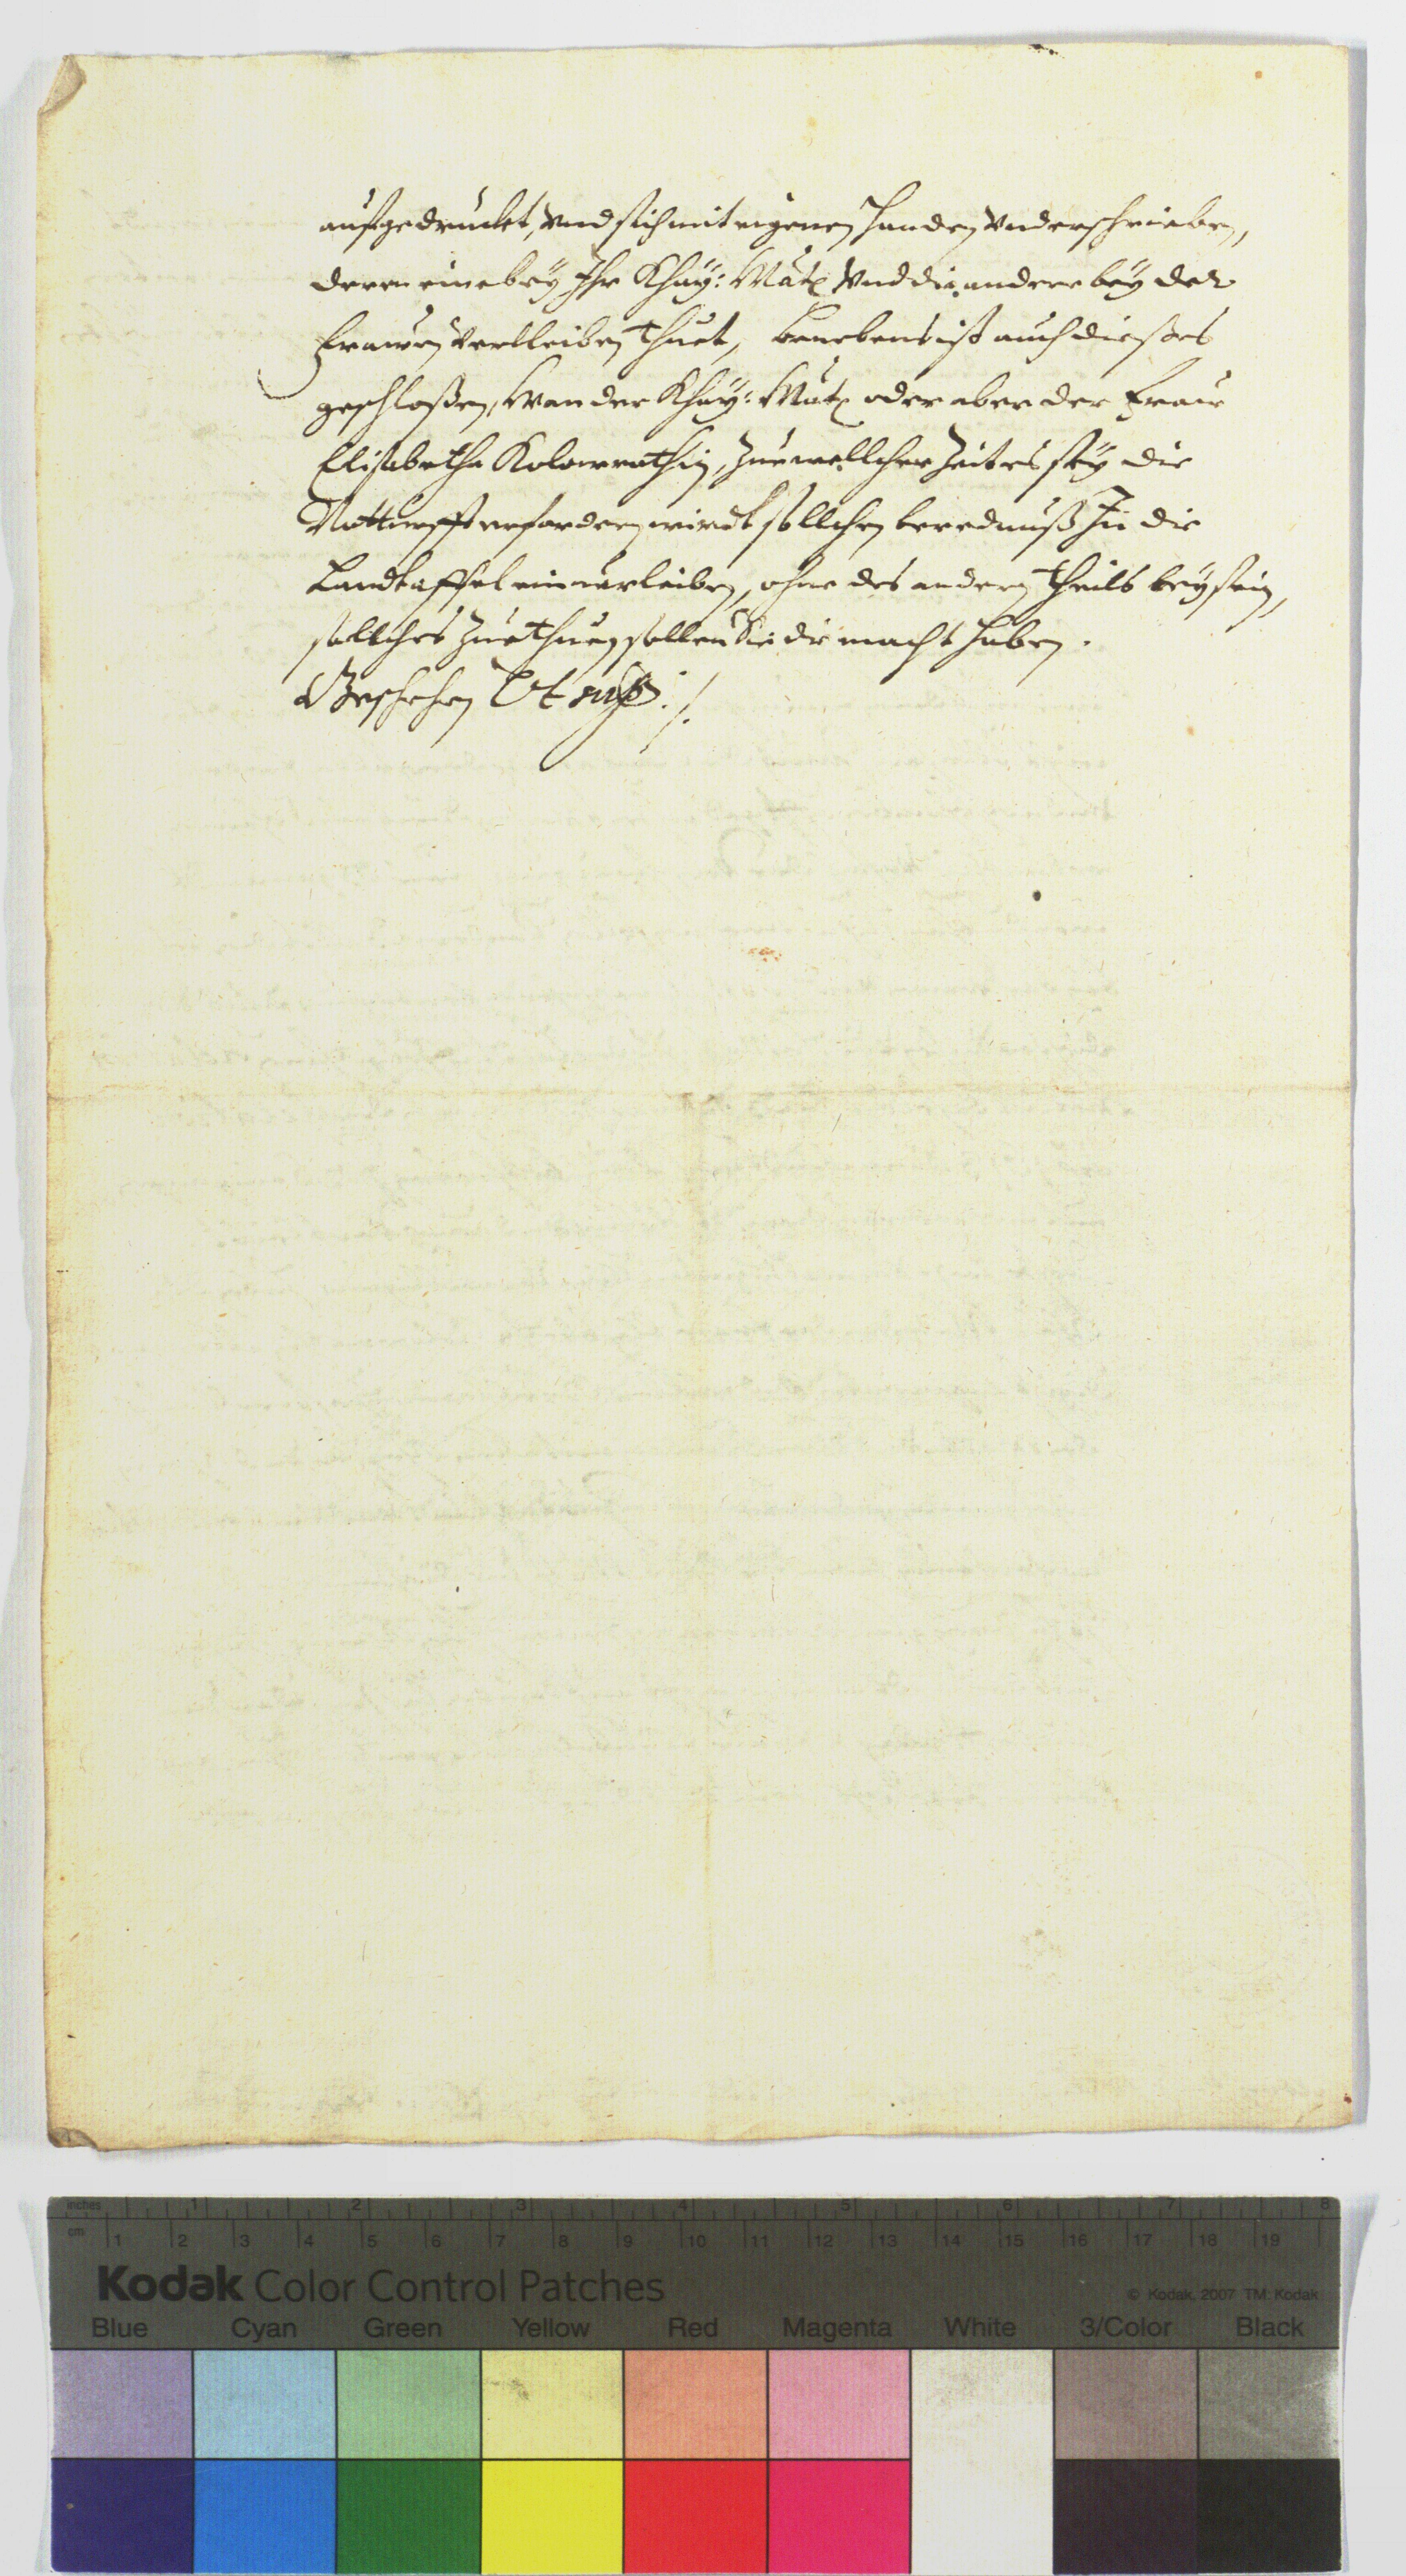 aufgedruckt, vnd sich mit aigenen Handen vnderschrieben,
deren eine bey Ihr Khay: Matt vnd die andere bey der
Frawen verbleiben thuet, benebens ist auch dießes
geschloßen, Wan der Khay: Matt oder aber der Fraw
Elisabetha Kolowrathin, Zue wellicher Zeit es sey die
Notturfft erfordern wirdt sollchen berednuß In die
Landtaffel einverleiben, ohne des andern theils beysein,
sollches Zue thuen sollen Sie die macht haben.
Geschehen Vt supra ./.
inches 1 2 3 4 5 6 7 8
cm 1 2 3 4 5 6 7 8 9 10 11 12 13 14 15 16 17 18 19
Kodak Color Control Patches
© Kodak, 2007 TM: Kodak
Blue Cyan Green Yellow Red Magenta White 3/Color Black